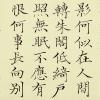 影何似在人間
轉朱閣低綺戶
照無眠不應有
恨何事長向別